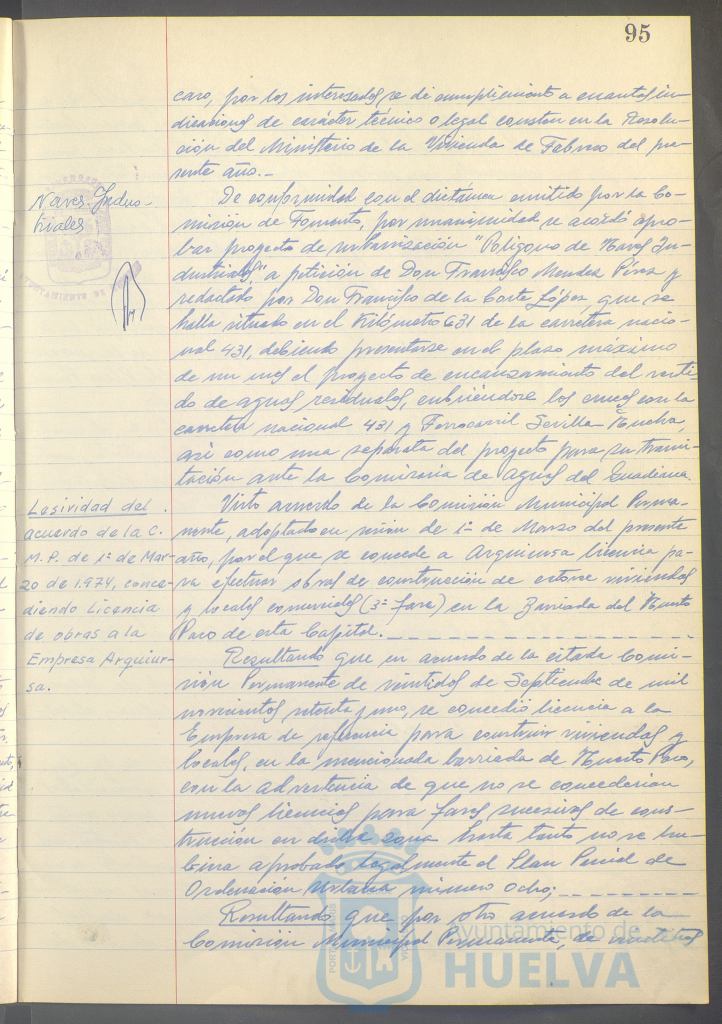 95
caso, por los interesados se dé cumplimiento a cuantas in-
dicaciones de carácter técnico o legal constan en la Resolu-
ción del Ministerio de la Vivienda de Febrero del pre-
sente año.-
Naves Indus-
triales
De conformidad con el dictamen emitido por la Co-
misión de Fomento, por unanimidad se acordó apro-
bar proyecto de urbanización "Polígono de Naves In-
dustriales", a petición de Don Francisco Mendez Pérez y
redactado por Don Francisco de la Corte López, que se
halla situado en el Kilómetro 631 de la carretera nacio-
nal 431, debiendo presentarse en el plazo máximo
de un mes el proyecto de encauzamiento del verti-
do de aguas residuales, cubriéndose los cruces con la
carretera nacional 431 y Ferrocarril Sevilla-Huelva,
así como una separata del proyecto para su trami-
tación ante la Comisaría de Aguas del Guadiana.
Lesividad del
acuerdo de la C.
M. P. de 1º de Mar-
zo de 1.974, conce-
diendo Licencia
de obras a la
Empresa Arquiur-
sa.
Visto acuerdo de la Comisión Municipal Perma-
nente, adoptado en sesión de 1º de Marzo del presente
año, por el que se concede a Arquiursa licencia pa-
ra efectuar obras de construcción de viviendas
y locales comerciales (3ª fase) en la Barriada del Huerto
Paco de esta Capital.
Resultando que en acuerdo de la citada Comi-
sión Permanente de veintidos de Septiembre de mil
novecientos setenta y uno, se concedió licencia a la
Empresa de referencia para construir viviendas y
locales, en la mencionada barriada de Huerto Paco,
con la advertencia de que no se concederían
nuevas licencias para fases sucesivas de cons-
trucción en dicha zona hasta tanto no se hu-
biera aprobado legalmente el Plan Parcial de
Ordenación Urbana número ocho;
Resultando que por otro acuerdo de la
Comisión Municipal Permanente de
ayuntamiento de
HUELVA